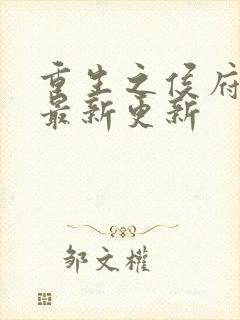 重生之侯府
最新更新
邹文权